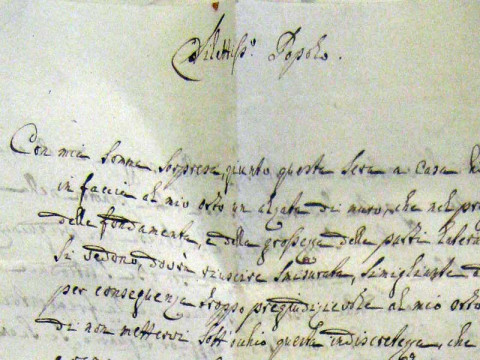 Dilettiss.º Popolo.
Con mia somma sorpresa, giunto questa sera a casa
in faccia al mio orto un alzata di muro, che nel
delle fondamenta, e della grossezza delle parti latera
si vedono, dovrà riuscire smisurata, simigliante
per conseguenza troppo pregiudizievole al mio orto
di non mettervi sott'occhio questa indiscretezza, che